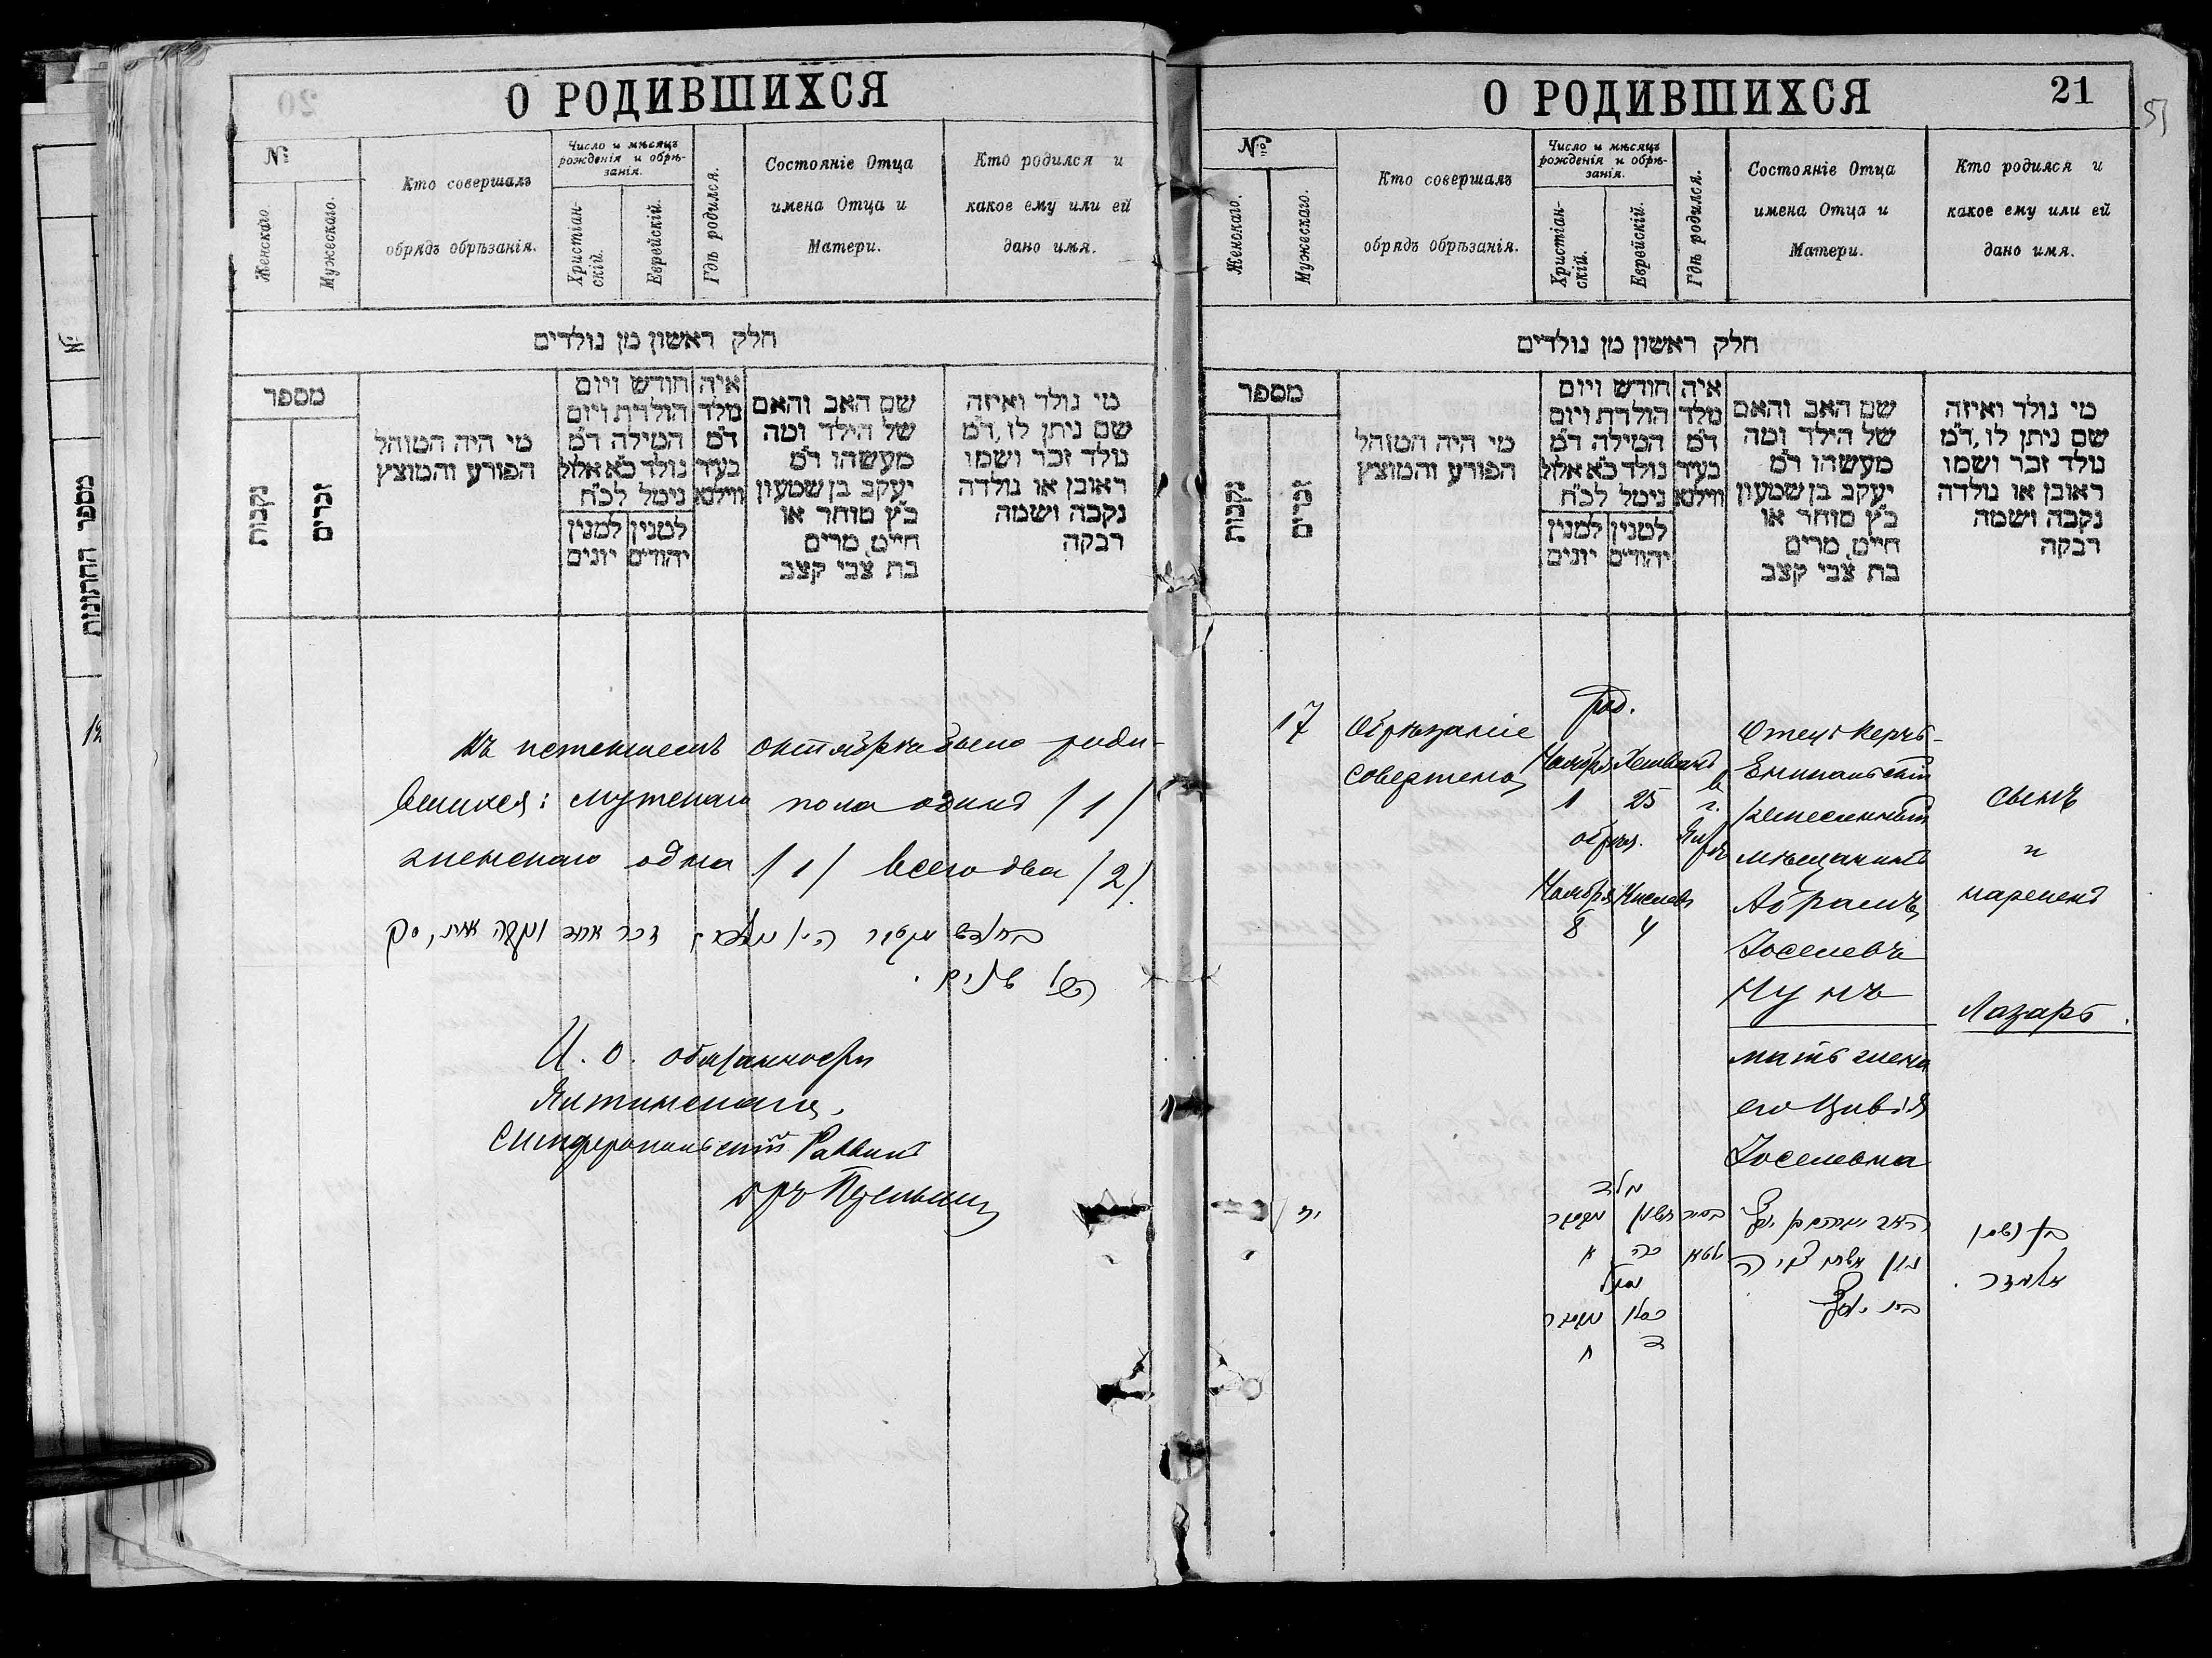 О РОДИВШИХСЯ
№
Женскаго.
Мужескаго.
Кто совершалъ
обрядъ обрѣзанія.
Число и мѣсяцъ
рожденія и обрѣ-
занія.
Христіан-
скій.
Еврейскій.
Гдѣ родился.
Состояніе Отца
имена Отца и
Матери.
Кто родился и
какое ему или ей
дано имя.
חלק ראשון מן נולדים
מספר
נקבות
זכרים
מי היה המוהל
הפורע והמוצץ
חודש ויום
הולדת ויום
המילה ד״מ
נולד כ״א אלול
נימל לכ״ח
למנין יהודים
למנין יונים
איה
מלד
ד״מ
בעיר
ווילנא
שם האב והאם
של הילד ומה
מעשהו ד״מ
יעקב בן שמעון
כ״ץ סוחר או
חייט, מרים
בת צבי קצב
מי נולד ואיזה
שם ניתן לו, ד״מ
נולד זכר ושמו
ראובן או נולדה
נקבה ושמה
רבקה
Въ истекшемъ октябрѣ было роди-
вшихся: мужскаго пола одинъ /1/
женскаго одна /1/ всего два /2/.
И. о. обязанности
Ялтинскаго,
Симферопольскій Раввинъ
О РОДИВШИХСЯ
21
51
№
Женскаго.
Мужескаго.
Кто совершалъ
обрядъ обрѣзанія.
Число и мѣсяцъ
рожденія и обрѣ-
занія.
Христіан-
скій.
Еврейскій.
Гдѣ родился.
Состояніе Отца
имена Отца и
Матери.
Кто родился и
какое ему или ей
дано имя.
חלק ראשון מן נולדים
מספר
נקבות
זכרים
מי היה המוהל
הפורע והמוצץ
חודש ויום
הולדת ויום
המילה ד״מ
נולד כ״א אלול
נימל לכ״ח
למנין יהודים
למנין יונים
איה
מלד
ד״מ
בעיר
ווילנא
שם האב והאם
של הילד ומה
מעשהו ד״מ
יעקב בן שמעון
כ״ץ סוחר או
חייט, מרים
בת צבי קצב
מי נולד ואיזה
שם ניתן לו, ד״מ
נולד זכר ושמו
ראובן או נולדה
נקבה ושמה
רבקה
17
Обрѣзаніе
совершено
род.
Ноября Хешванъ
1 25
обрѣз.
Ноября Кислевъ
8 4
в г.
Отецъ Керчь-
Еникальскій
ремесленный
мѣщанинъ
Абрамъ
Іоселевъ
Нунъ
мать жена
его Цивія
Іоселевна
сынъ
и
нареченъ
Лазарь.
יז
נולד
חשון
כה א
נמול
כסלו
ד ח